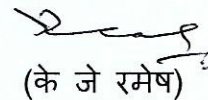 (के जे रमेष)